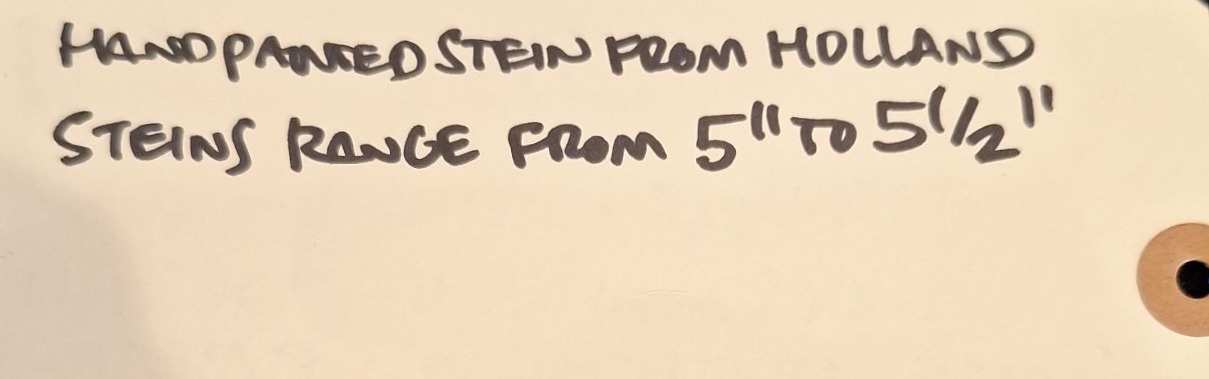 HAND PAINTED STEIN FROM HOLLAND
STEINS RANGE FROM 5" TO 5 1/2"